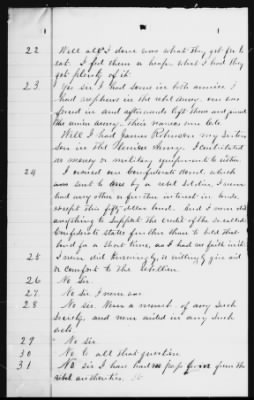 22 Well all I done was what they got to
eat. I fed them a heap what I had they
got plenty of it
23 Yes sir I had some in both armies I
had nephews in the rebel Army. one was
forced in and afterwards left them and joined
the union Army. Their names are Cole.
Well I had James Robinson my sisters
son in the Union Army. I contributed
no money or military equipment to either.
24 I owned one Confederate bond, which
was sent to me by a rebel soldier, I never
had any other or further interest in bonds
except this fifty dollar bond. And I never did
anything to support the credit of the so called
Confederate states further than to hold that
bond for a short time, as I had no faith in it.
25 I never did knowingly, or willingly give aid
or comfort to the rebellion.
26 No Sir.
27 No Sir I never was
28 No sir. Never a member of any such
society, and never aided in any such
acts.
29 No sir.
30 No to all that question
31 No sir I have had no pass from the
rebel authorities.